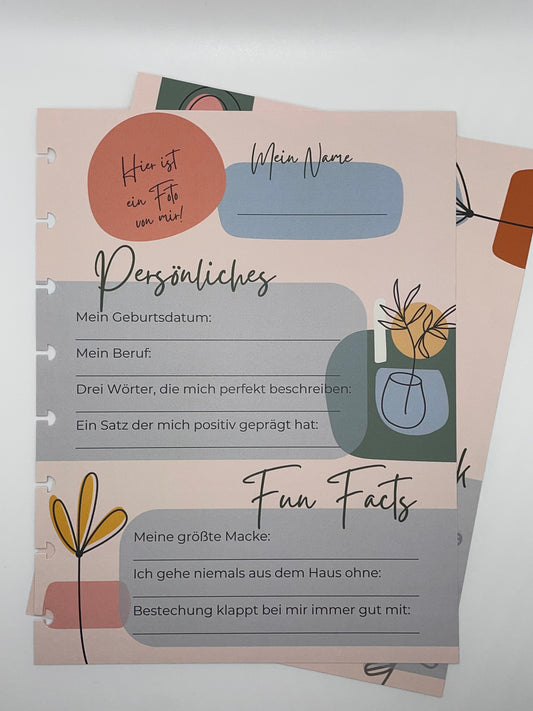 Hier ist
ein Foto
von mir!
Mein Name
Persönliches
Mein Geburtsdatum:
Mein Beruf:
Drei Wörter, die mich perfekt beschreiben:
Ein Satz der mich positiv geprägt hat:
Fun Facts
Meine größte Macke:
Ich gehe niemals aus dem Haus ohne:
Bestechung klappt bei mir immer gut mit: